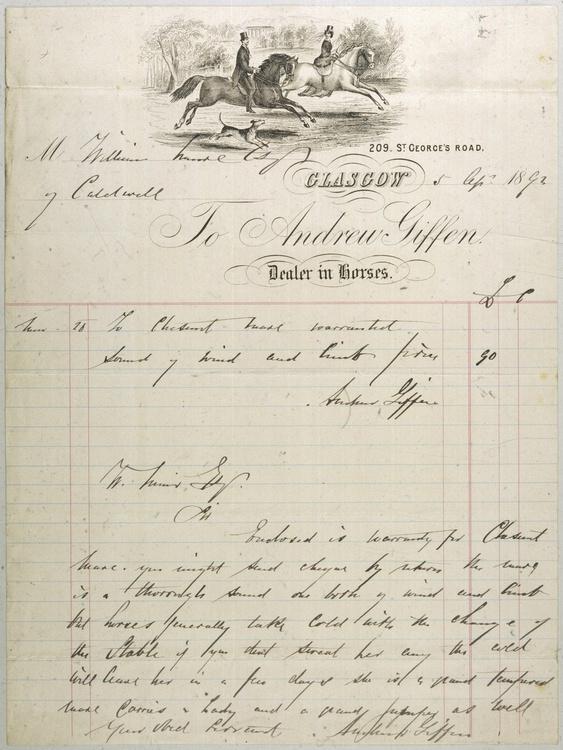 209. ST. GEORGE'S ROAD.
Mr William Esqr
GLASGOW 5 Apr. 1892
of Caldwell
To Andrew Giffen.
Dealer in Horses.
£
28 To Chesnut mare warranted
sound of wind and limb price 90
Andrew Giffen
W. Esqr.
Sir
Enclosed is warranty for Chesnut
mare. you might send cheque by return the mare
is a thorough sound one both of wind and limb
but horses generally take cold with the change of
the Stable if you dont sweat her any the cold
will leave her in a few days she is a grand tempered
mare Carries a Lady and a grand jumper as well
Your Obed Servant Andrew Giffen